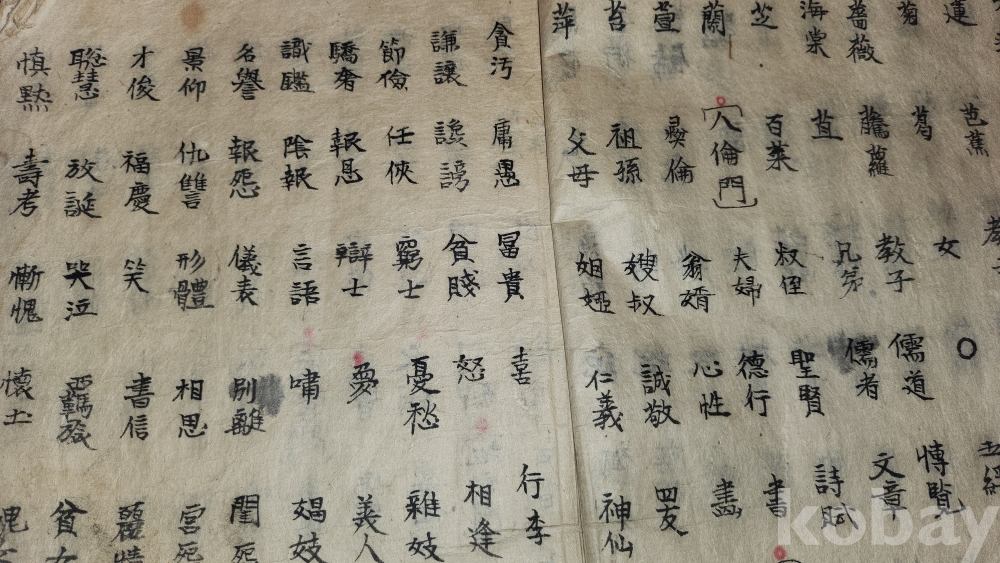 蓮 菊 薔薇 海棠 芝 蘭 萱 苔 萍
芭蕉 葛 藤蘿 百菜 人倫門 彛倫 祖孫 父母
女 教子 兄弟 叔侄 夫婦 翁婿 嫂叔 姻婭
○ 儒道 儒者 聖賢 德行 心性 誠敬 仁義
五經 博覽 文章 詩賦 書 畵 四友 神仙
貪汚 謙讓 節儉 驕奢 識鑑 名譽 景仰 才俊 聰慧 愼黙
庸愚 讒謗 任俠 報恩 陰報 報怨 仇讐 福慶 放誕 壽考
冨貴 貧賤 窮士 辯士 言語 儀表 形體 笑 哭泣 慚愧
喜 怒 憂愁 愛 嘯 別離 相思 書信 懷土
行李 相逢 雜妓 美人 娼妓 閨 宮 麗情 貧女
kobay